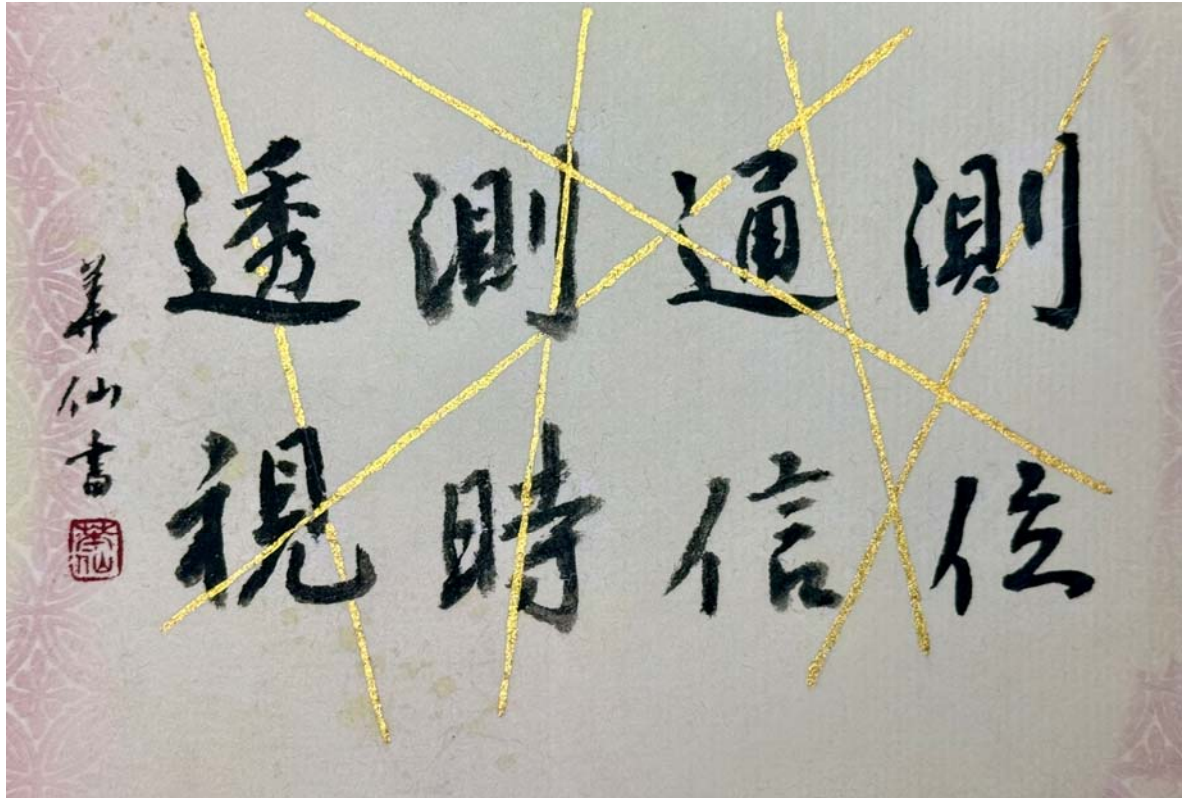 測位
通信
測時
透視
華仙書
華仙